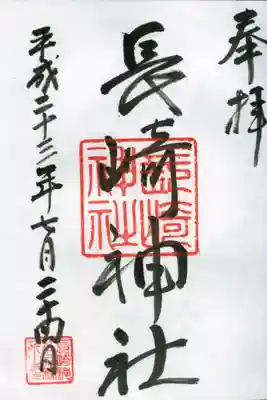 奉拝
長崎神社
長崎
神社
平成二十三年七月二十四日